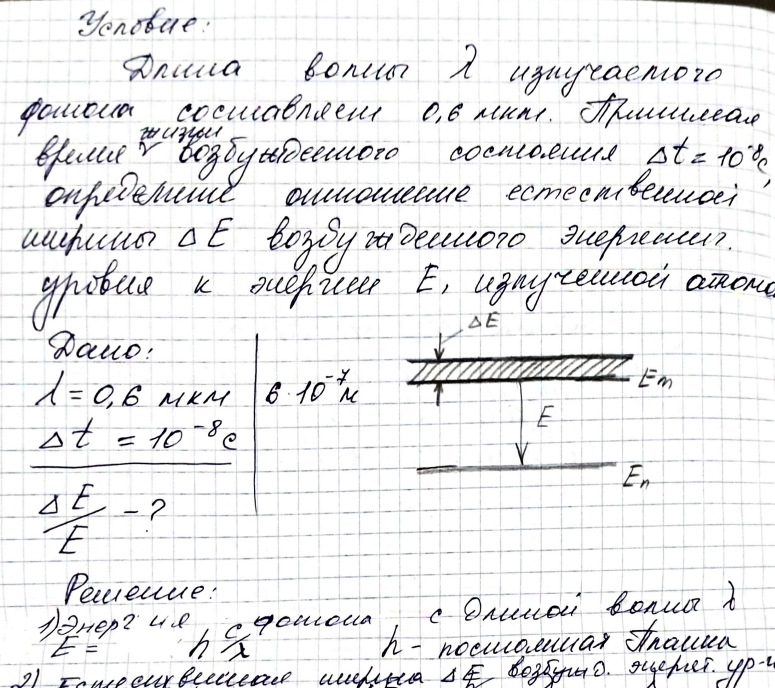 Условие:
Длина волны λ излучаемого
фотона составляет 0,6 мкм. Принимая
время жизни возбужденного состояния Δt = 10⁻⁸ с,
определите отношение естественной
ширины ΔE возбужденного энергетич.
уровня к энергии E, излученной атомо
Дано:
λ = 0,6 мкм | 6·10⁻⁷ м
Δt = 10⁻⁸ с
ΔE/E - ?
ΔE
Em
E
En
Решение:
1) Энергия фотона с длиной волны λ
E = h c/λ h - постоянная Планка
2) Естественная ширина ΔE возбужд. энергет. ур-